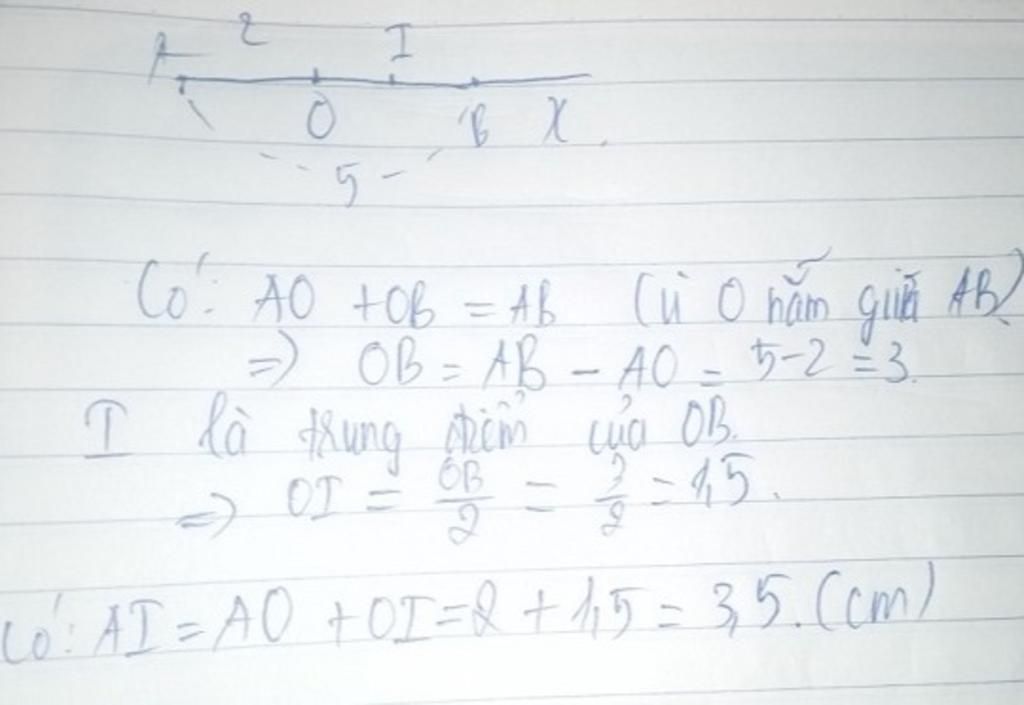 A 2 I
O B X
5
Có: AO + OB = AB (Vì O nằm giữa AB)
=> OB = AB - AO = 5-2 = 3.
I là trung điểm của OB.
=> OI = OB/2 = 3/2 = 1,5.
Có: AI = AO + OI = 2 + 1,5 = 3,5. (cm)